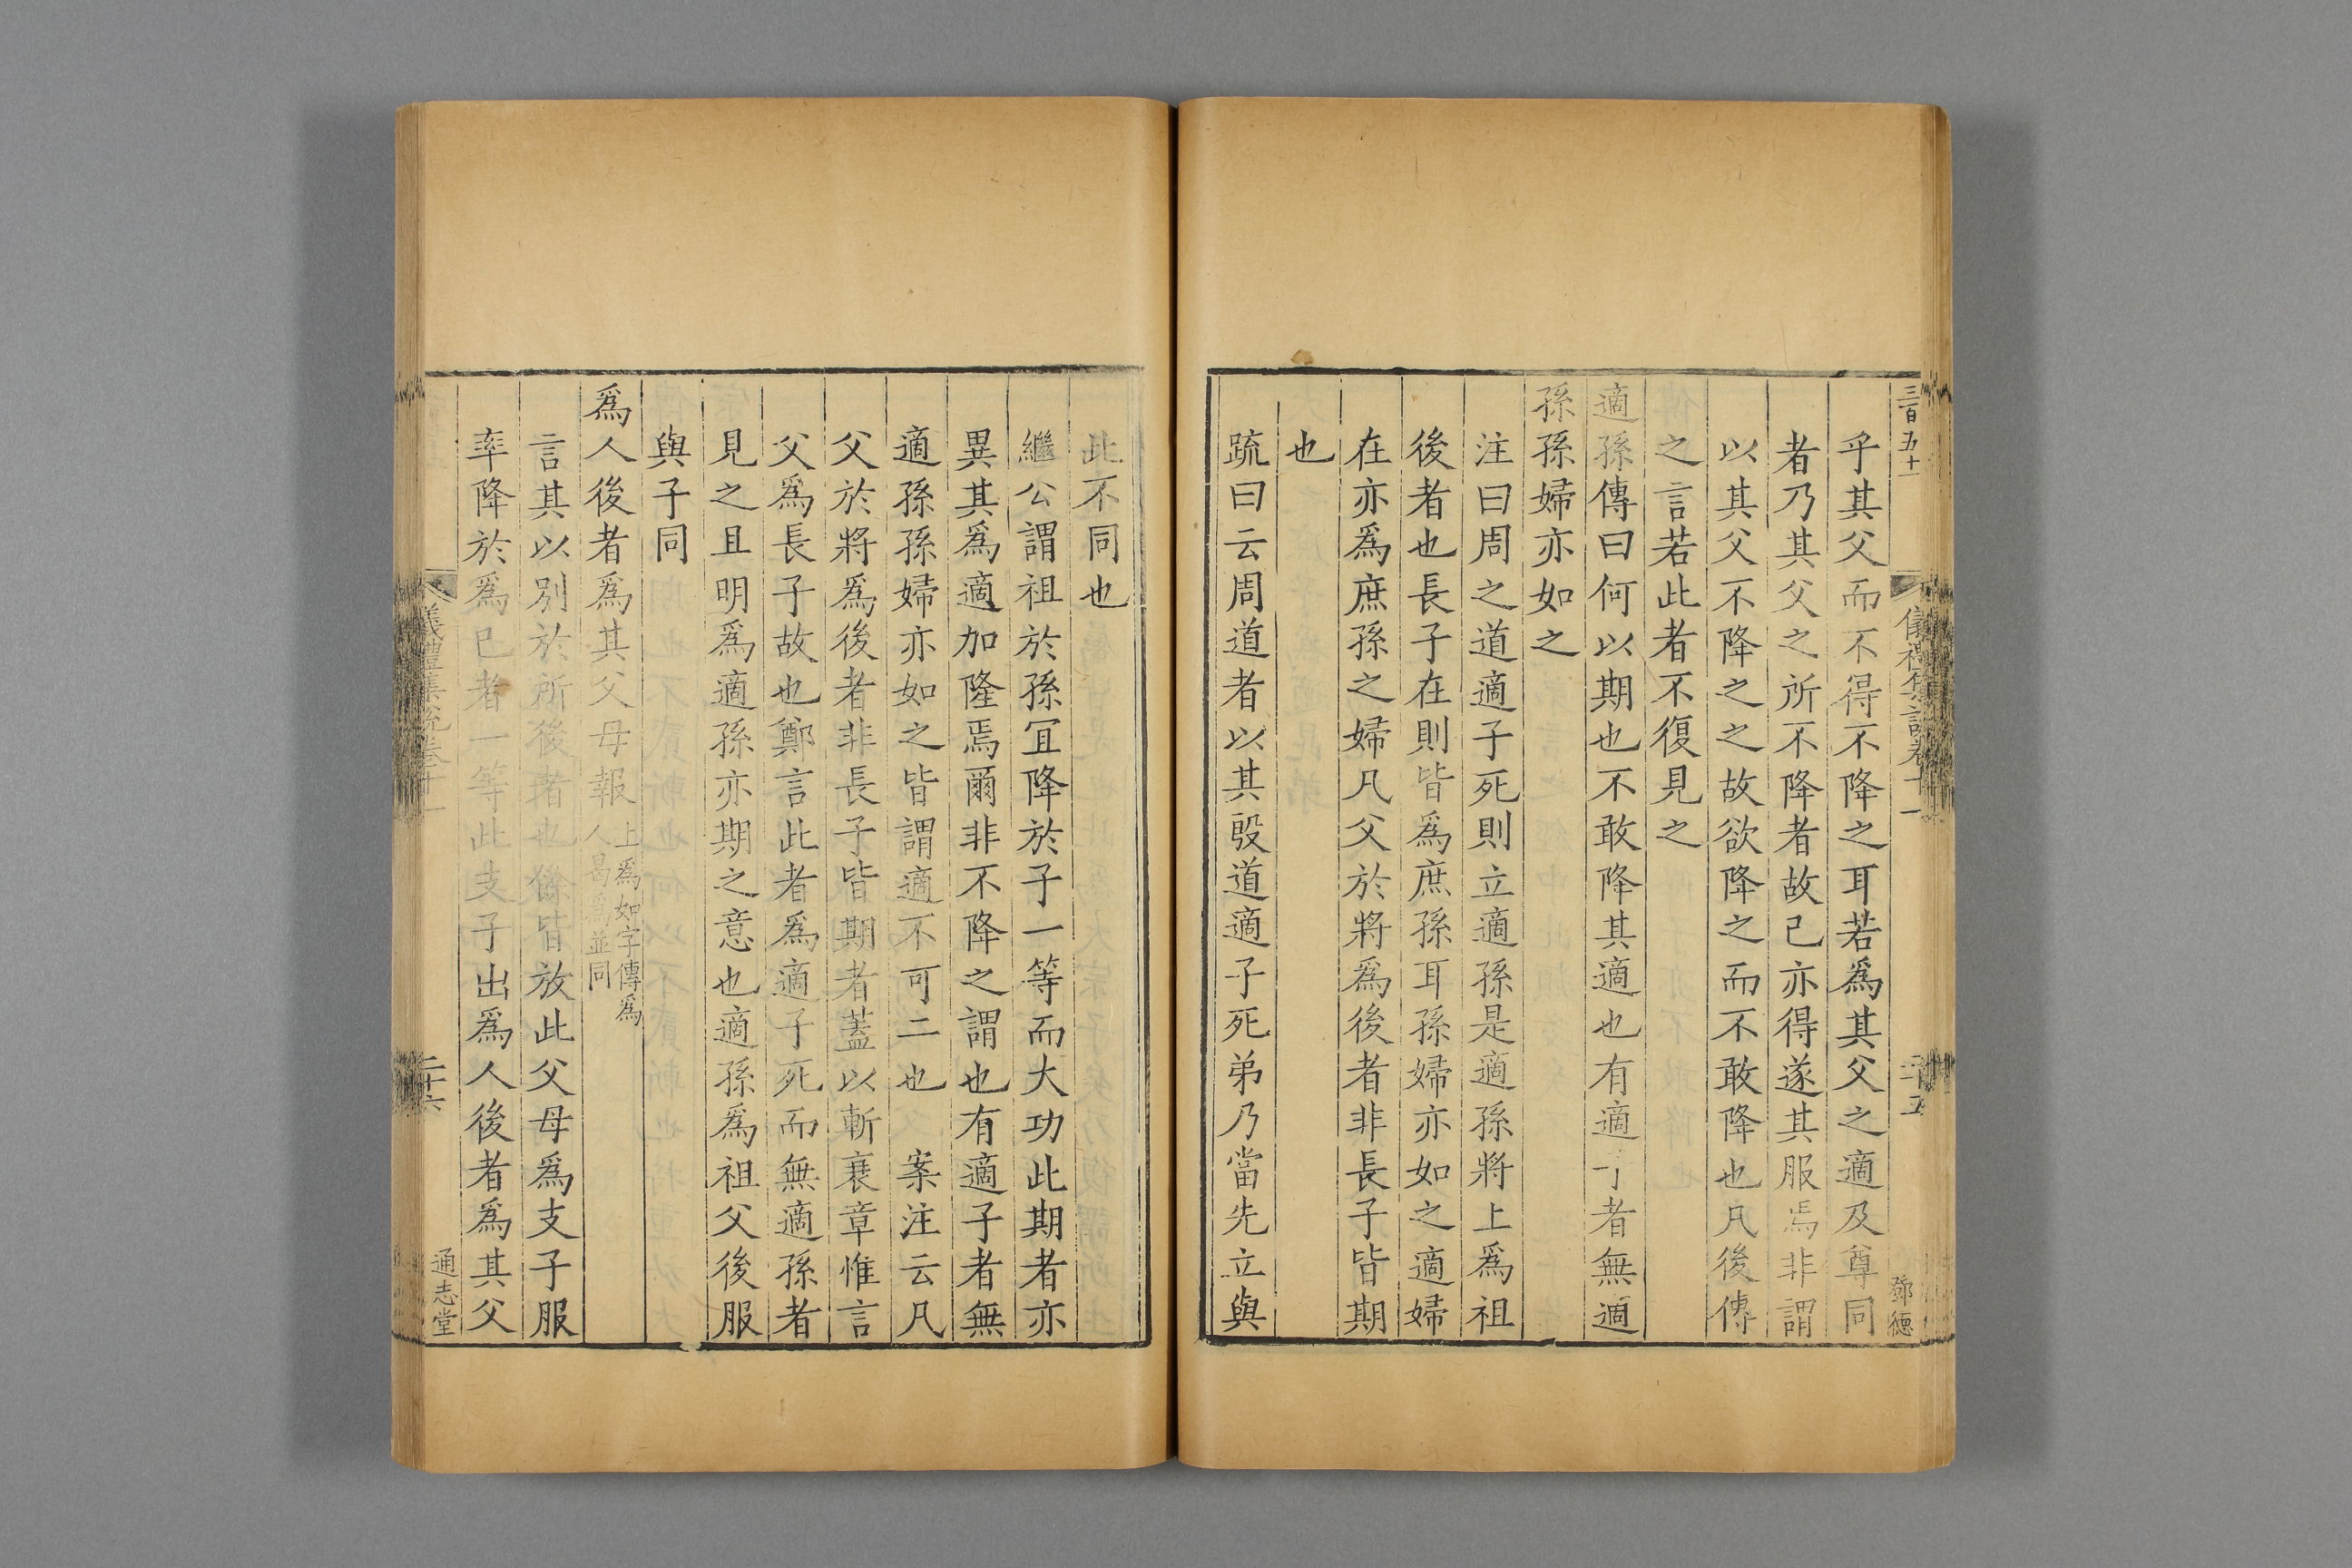 三百五十一
儀禮集說卷十一
二十五
鄧德
乎其父而不得不降之耳若爲其父之適及尊同
者乃其父之所不降者故己亦得遂其服焉非謂
以其父不降之之故欲降之而不敢降也凡後傳
之言若此者不復見之
適孫傳曰何以期也不敢降其適也有適子者無適
孫孫婦亦如之
注曰周之道適子死則立適孫是適孫將上爲祖
後者也長子在則皆爲庶孫耳孫婦亦如之適婦
在亦爲庶孫之婦凡父於將爲後者非長子皆期
也
疏曰云周道者以其殷道適子死弟乃當先立與
此不同也
繼公謂祖於孫宜降於子一等而大功此期者亦
異其爲適加隆焉爾非不降之謂也有適子者無
適孫孫婦亦如之皆謂適不可二也 案注云凡
父於將爲後者非長子皆期者蓋以斬衰章惟言
父爲長子故也鄭言此者爲適子死而無適孫者
見之且明爲適孫亦期之意也適孫爲祖父後服
與子同
爲人後者爲其父母報上爲如字傳爲人曷爲並同
言其以別於所後者也餘皆放此父母爲支子服
率降於爲己者一等此支子出爲人後者爲其父
儀禮集說卷十一
二十六
通志堂